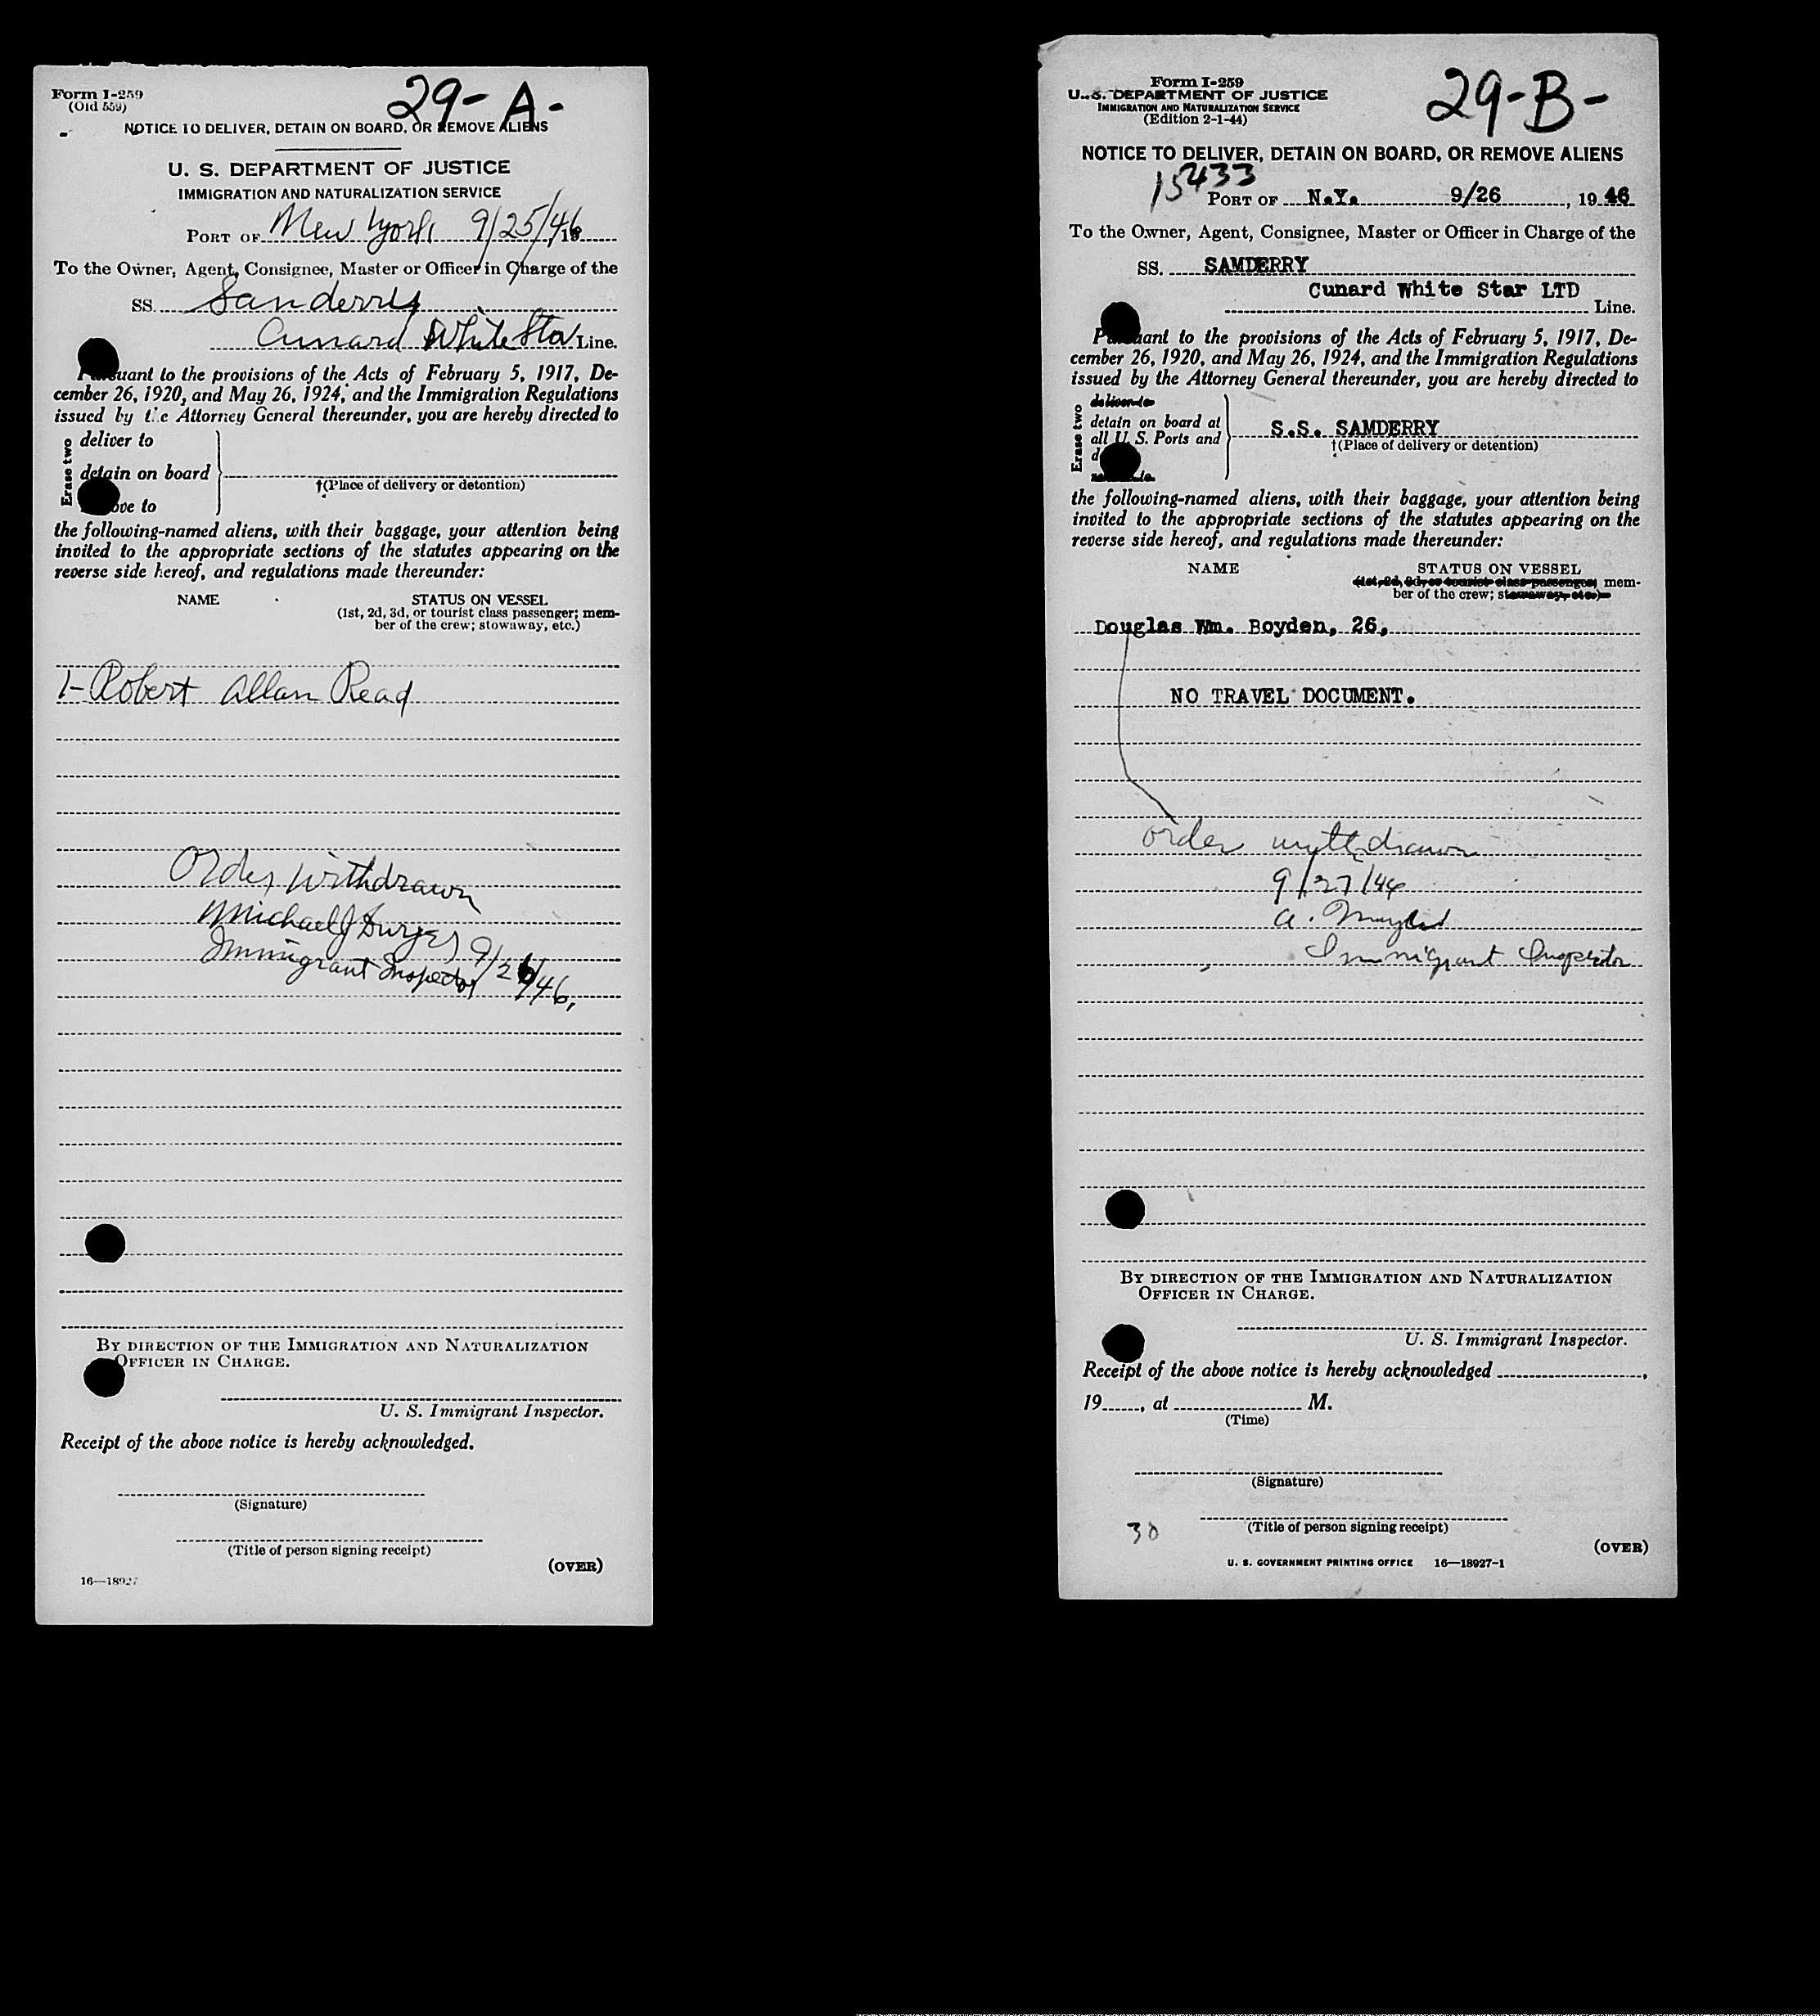 Form I-259
(Old 559)
29-A-
NOTICE TO DELIVER, DETAIN ON BOARD, OR REMOVE ALIENS
U. S. DEPARTMENT OF JUSTICE
IMMIGRATION AND NATURALIZATION SERVICE
PORT OF New York 9/25/46, 19
To the Owner, Agent, Consignee, Master or Officer in Charge of the
SS. Sanderry
Cunard White Star Line.
Pursuant to the provisions of the Acts of February 5, 1917, De-
cember 26, 1920, and May 26, 1924, and the Immigration Regulations
issued by the Attorney General thereunder, you are hereby directed to
Erase two
deliver to
detain on board
†(Place of delivery or detention)
ove to
the following-named aliens, with their baggage, your attention being
invited to the appropriate sections of the statutes appearing on the
reverse side hereof, and regulations made thereunder:
NAME STATUS ON VESSEL
(1st, 2d, 3d, or tourist class passenger; mem-
ber of the crew; stowaway, etc.)
1- Robert Allan Read
Order Withdrawn
Michael J
Immigrant Inspector 9/26/46,
BY DIRECTION OF THE IMMIGRATION AND NATURALIZATION
OFFICER IN CHARGE.
U. S. Immigrant Inspector.
Receipt of the above notice is hereby acknowledged.
(Signature)
(Title of person signing receipt)
(OVER)
16—18927
Form I-259
U. S. DEPARTMENT OF JUSTICE
IMMIGRATION AND NATURALIZATION SERVICE
(Edition 2-1-44)
29-B-
NOTICE TO DELIVER, DETAIN ON BOARD, OR REMOVE ALIENS
15433
PORT OF N.Y. 9/26, 1946
To the Owner, Agent, Consignee, Master or Officer in Charge of the
SS. SAMDERRY
Cunard White Star LTD
Line.
Pursuant to the provisions of the Acts of February 5, 1917, De-
cember 26, 1920, and May 26, 1924, and the Immigration Regulations
issued by the Attorney General thereunder, you are hereby directed to
Erase two
deliver to
detain on board at
all U. S. Ports and
S.S. SAMDERRY
†(Place of delivery or detention)
the following-named aliens, with their baggage, your attention being
invited to the appropriate sections of the statutes appearing on the
reverse side hereof, and regulations made thereunder:
NAME STATUS ON VESSEL
(1st, 2d, 3d, or tourist class passenger; mem-
ber of the crew; stowaway, etc.)
Douglas Wm. Boyden, 26,
NO TRAVEL DOCUMENT.
order withdrawn
9/27/46
a.
Immigrant Inspector
BY DIRECTION OF THE IMMIGRATION AND NATURALIZATION
OFFICER IN CHARGE.
U. S. Immigrant Inspector.
Receipt of the above notice is hereby acknowledged,
19, at M.
(Time)
(Signature)
30
(Title of person signing receipt)
(OVER)
U. S. GOVERNMENT PRINTING OFFICE 16—18927-1